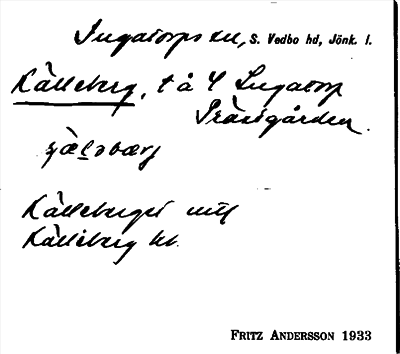 Ingatorps sn, S. Vedbo hd, Jönk. l.
Källeberg, t å 4 Ingatorp
Prästgården.
Källeberget utl
Källeberg kb.
FRITZ ANDERSSON 1933